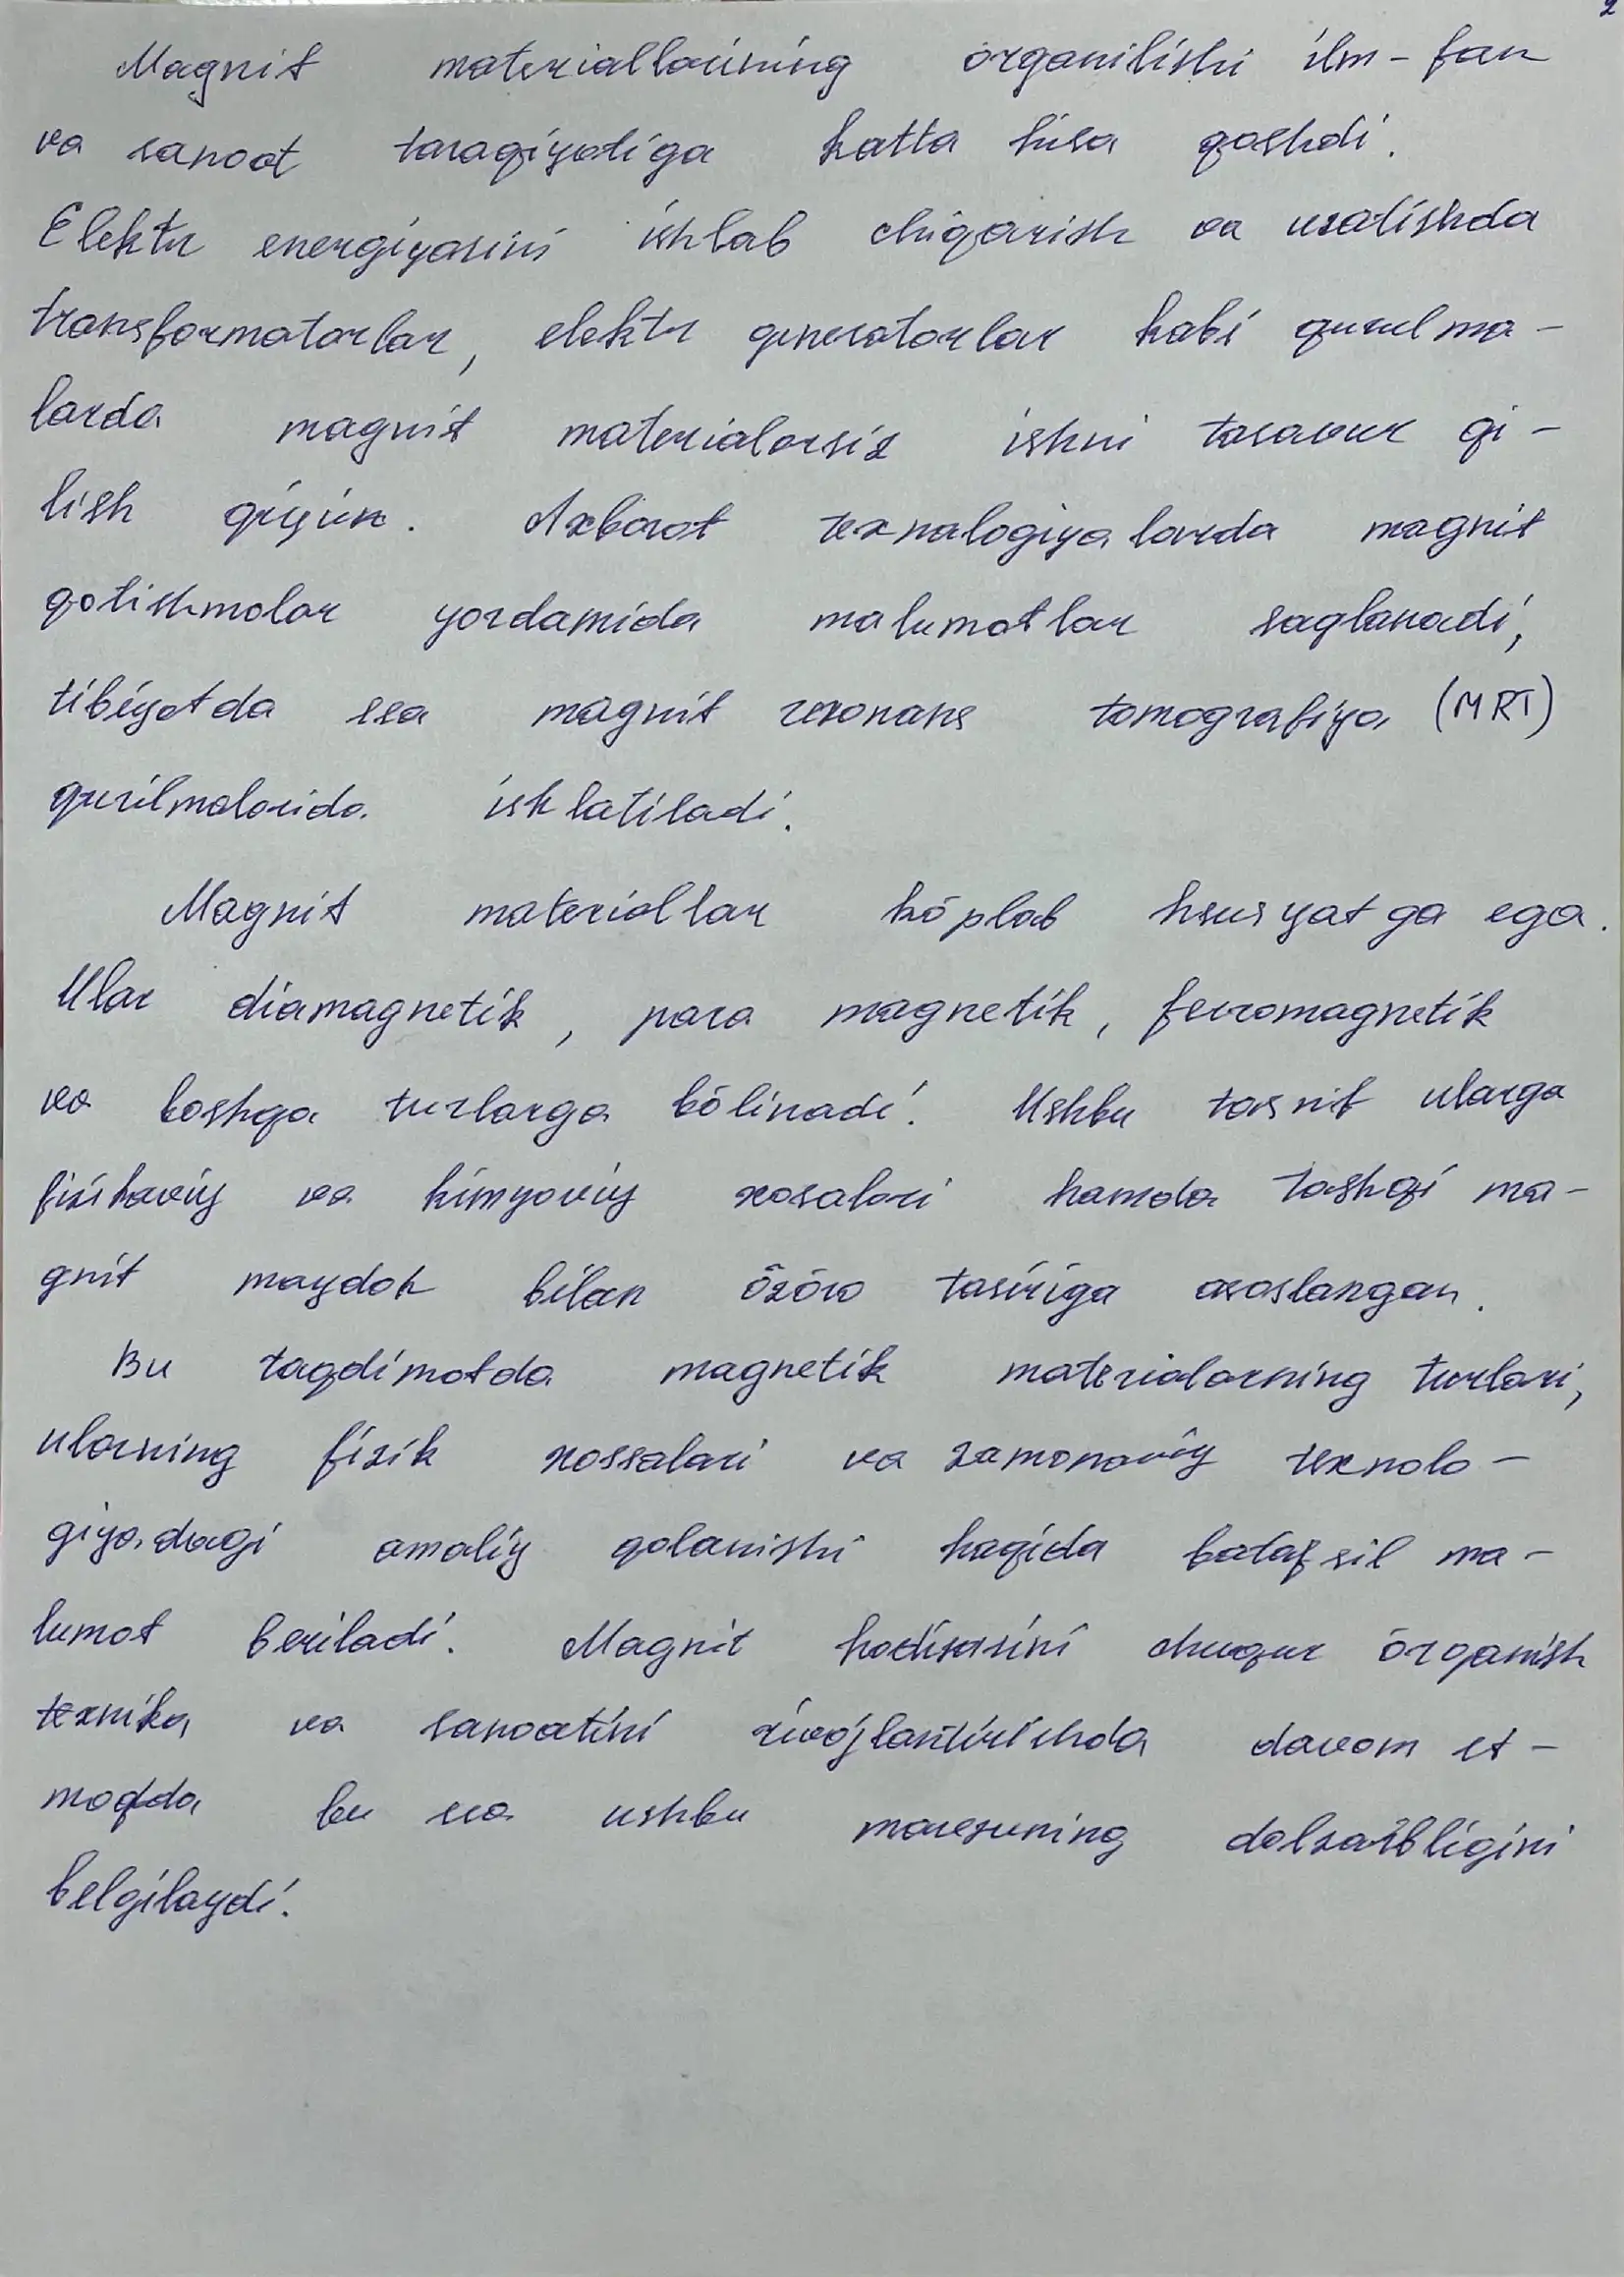 2
Magnit materiallarining órganilishi ilm-fan
va sanoat taraqiyotiga katta hisa qoshdi.
Elektr energiyasini ishlab chiqarish va uzatishda
transformatorlar, elektr generatorlar kabi qurulma-
larda magnit materialarsiz ishni tasavur qi-
lish qiyin. Axborot texnalogiyalarda magnit
qotishmalar yordamida malumotlar saqlanadi,
tibiyotda esa magnit rezonans tomografiya (MRT)
qurilmalarida ishlatiladi.
Magnit materiallar kóplab hsusyatga ega.
Ular diamagnetik, para magnetik, ferromagnetik
va boshqa turlarga bólinadi. Ushbu tasnif ularga
fizikaviy va kimyoviy xosalari hamda tashqi ma-
gnit maydon bilan ózóro tasiriga asoslangan.
Bu taqdimotda magnetik materialarning turlari,
ularning fizik xossalari va zamonaviy texnolo-
giyadagi amaliy qolanishi haqida batafsil ma-
lumot beriladi. Magnit hodisasini chuqur órganish
texnika va sanoatini rivojlantirishda davom et-
moqda bu esa ushbu mavzuning dolzarbligini
belgilaydi.